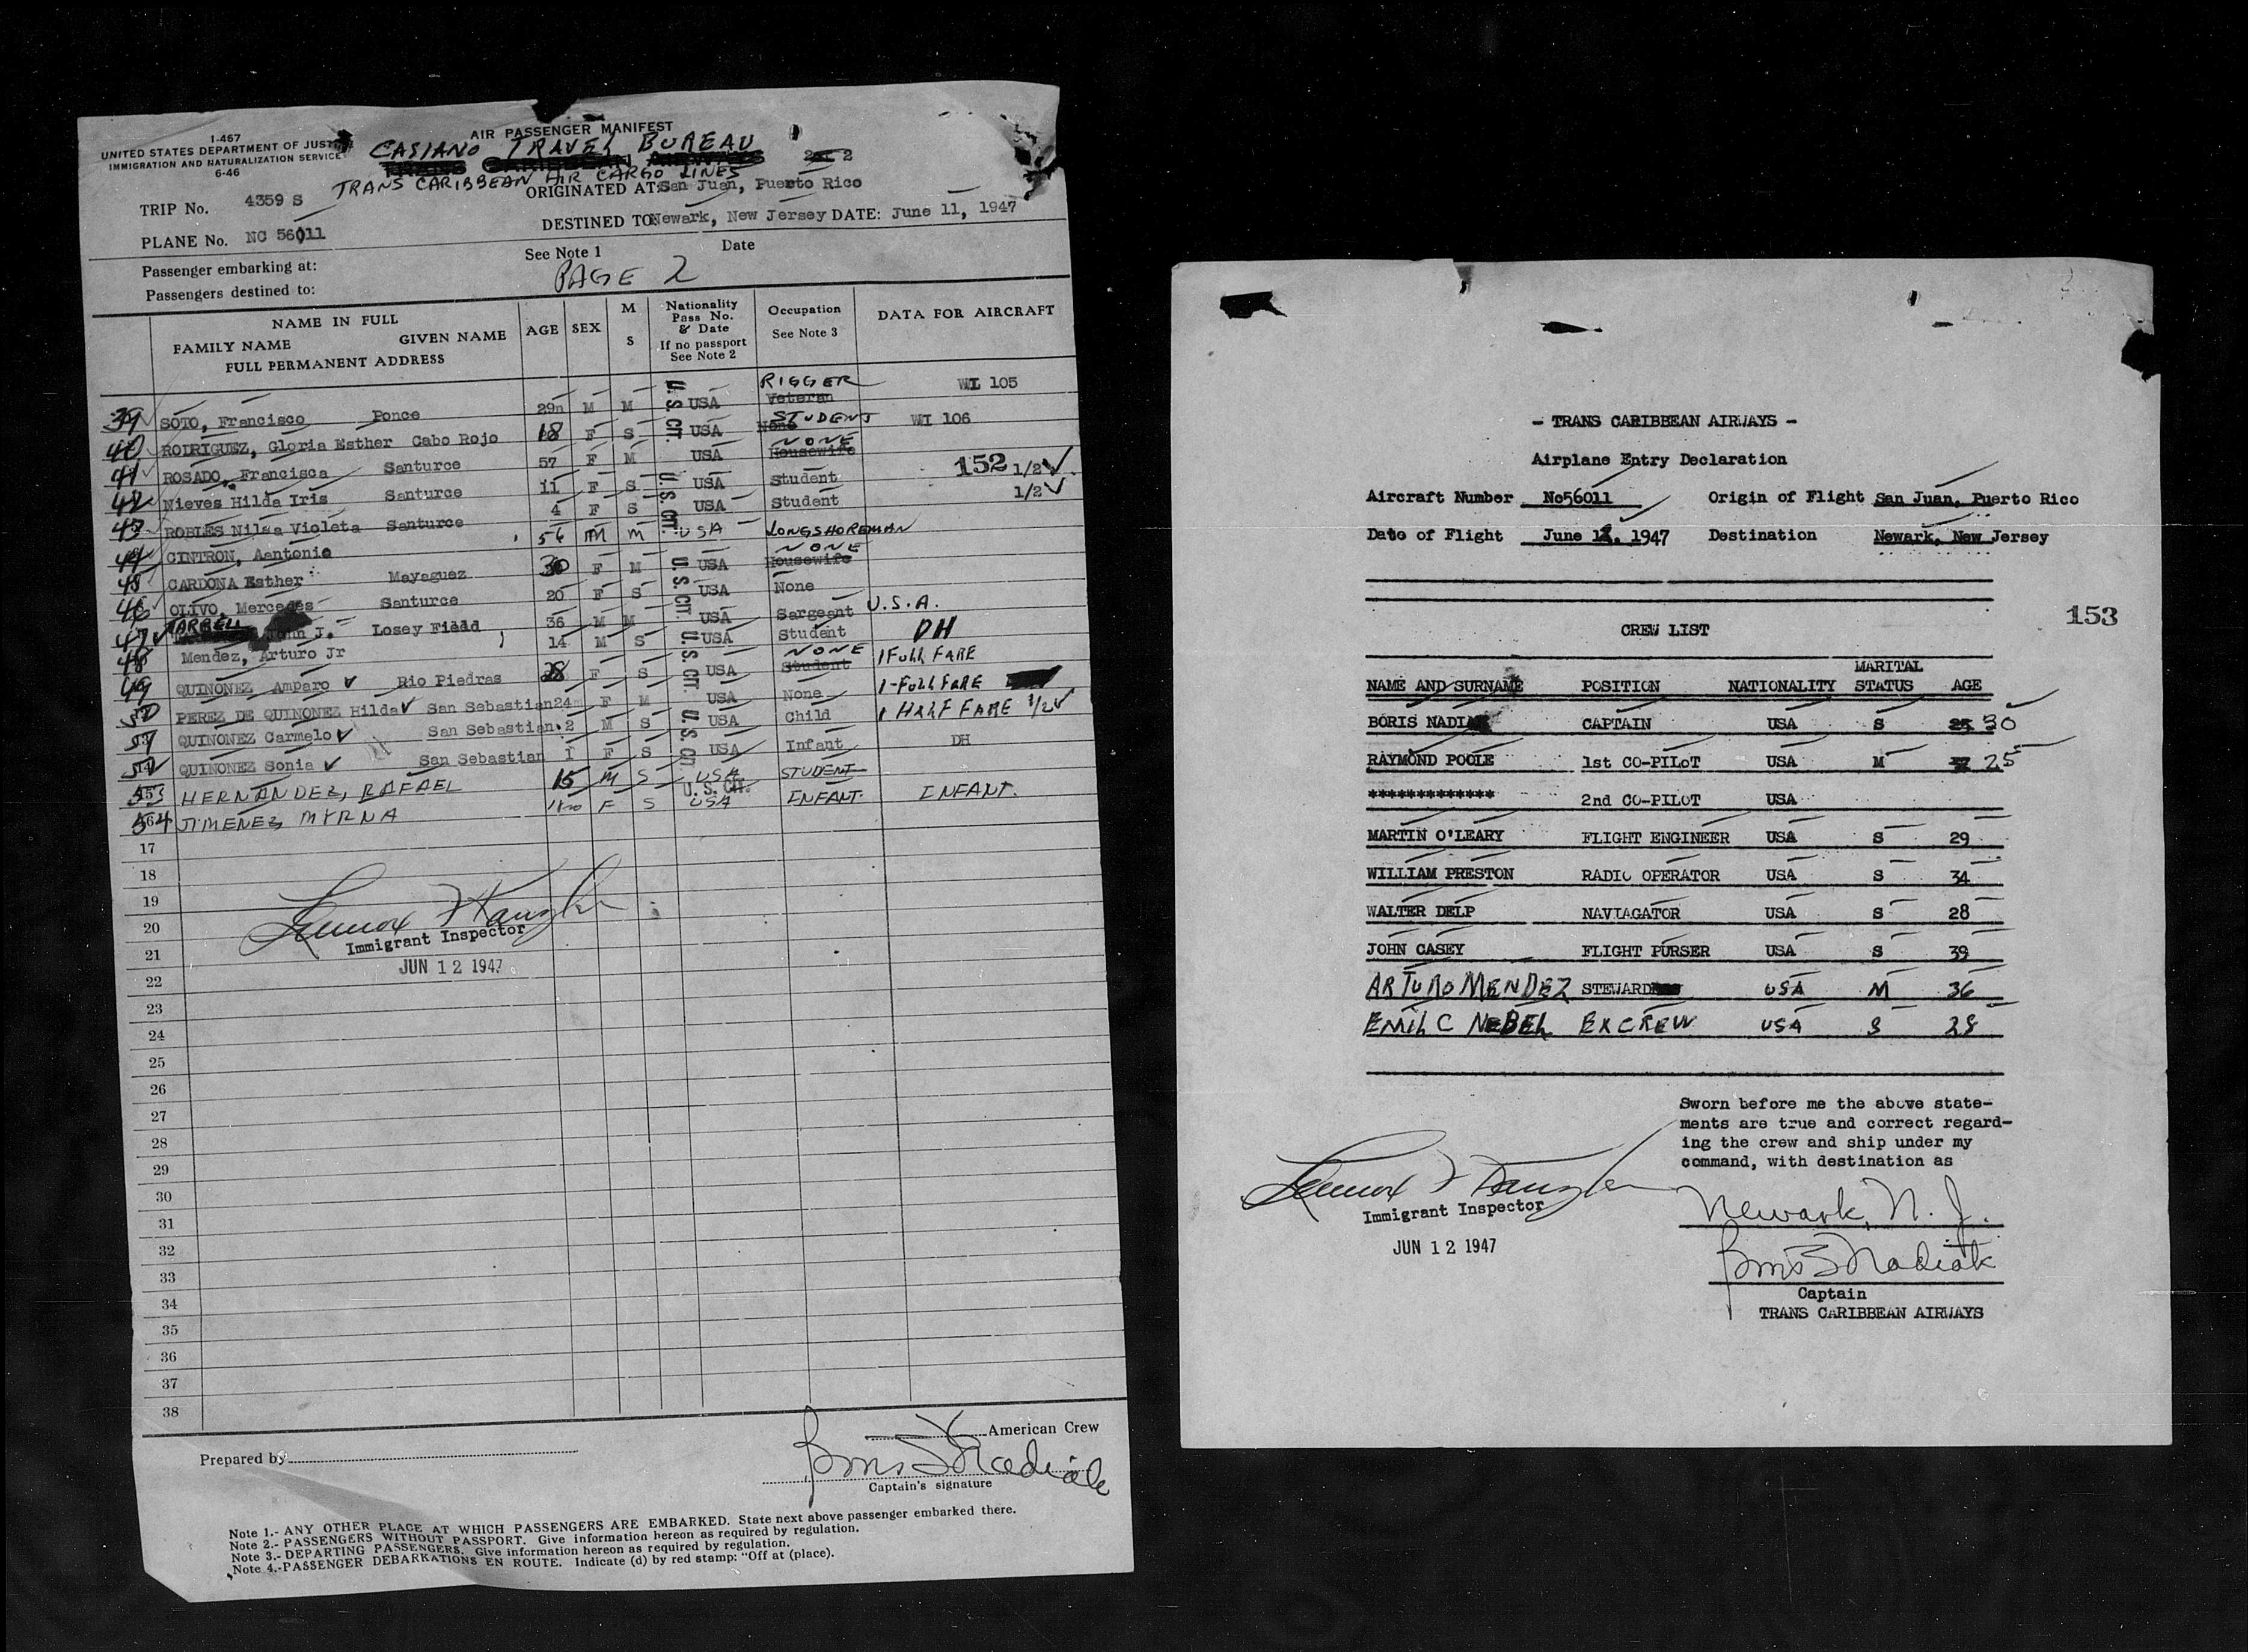 I-467
UNITED STATES DEPARTMENT OF JUSTICE
IMMIGRATION AND NATURALIZATION SERVICE
6-46
AIR PASSENGER MANIFEST
CASIANO TRAVEL BUREAU
TRANS CARIBBEAN AIRWAYS 2
TRANS CARIBBEAN AIR CARGO LINES
ORIGINATED AT: San Juan, Puerto Rico
TRIP No. 4359 S
DESTINED TO Newark, New Jersey DATE: June 11, 1947
PLANE No. NC 56011
See Note 1 Date
Passenger embarking at:
PAGE 2
Passengers destined to:
NAME IN FULL
FAMILY NAME GIVEN NAME
FULL PERMANENT ADDRESS
AGE SEX M S
Nationality Pass No. & Date If no passport See Note 2
Occupation See Note 3
DATA FOR AIRCRAFT
39 SOTO, Francisco Ponce 29 M M U.S. CIT. USA RIGGER Veteran WI 105
40 RODRIGUEZ, Gloria Esther Cabo Rojo 18 F S USA STUDENT None WI 106
41 ROSADO, Francisca Santurce 57 F M USA NONE Housewife
42 Nieves Hilda Iris Santurce 11 F S U.S. CIT. USA Student 152 1/2
43 ROBLES Nilsa Violeta Santurce 4 F S USA Student 1/2
44 CINTRON, Aantonio 56 M M USA LONGSHOREMAN
45 CARDONA Esther Mayaguez 30 F M U.S. CIT. USA NONE Housewife
46 OLIVO, Mercedes Santurce 20 F S USA None
47 TARBELL John J. Losey Field 36 M M USA Sargeant U.S.A.
48 Mendez, Arturo Jr 14 M S U.S. CIT. USA Student DH
49 QUINONEZ Amparo Rio Piedras 28 F S USA NONE Student 1 FULL FARE
50 PEREZ DE QUINONEZ Hilda San Sebastian 24 F M USA None 1-FULL FARE
51 QUINONEZ Carmelo San Sebastian 2 M S U.S. CIT. USA Child 1 HALF FARE 1/2
52 QUINONEZ Sonia San Sebastian 1 F S USA Infant DH
53 HERNANDEZ, RAFAEL 15 M S USA STUDENT
54 JIMENEZ MYRNA F S U.S. CIT. USA INFANT INFANT.
17
18
19
20
21
22
23
24
25
26
27
28
29
30
31
32
33
34
35
36
37
38
Immigrant Inspector
JUN 12 1947
American Crew
Prepared by
Boris Nadiak
Captain's signature
Note 1.- ANY OTHER PLACE AT WHICH PASSENGERS ARE EMBARKED. State next above passenger embarked there.
Note 2.- PASSENGERS WITHOUT PASSPORT. Give information hereon as required by regulation.
Note 3.- DEPARTING PASSENGERS. Give information hereon as required by regulation.
Note 4.-PASSENGER DEBARKATIONS EN ROUTE. Indicate (d) by red stamp: "Off at (place).
- TRANS CARIBBEAN AIRWAYS -
Airplane Entry Declaration
Aircraft Number Nc56011 Origin of Flight San Juan, Puerto Rico
Date of Flight June 12, 1947 Destination Newark, New Jersey
153
CREW LIST
NAME AND SURNAME POSITION NATIONALITY MARITAL STATUS AGE
BORIS NADIAK CAPTAIN USA S 25 30
RAYMOND POOLE 1st CO-PILOT USA M 25
************* 2nd CO-PILOT USA
MARTIN O'LEARY FLIGHT ENGINEER USA S 29
WILLIAM PRESTON RADIO OPERATOR USA S 34
WALTER DELP NAVIAGATOR USA S 28
JOHN CASEY FLIGHT PURSER USA S 39
ARTURO MENDEZ STEWARD USA M 36
EMIL C NEBEL EXCREW USA S 28
Sworn before me the above state-
ments are true and correct regard-
ing the crew and ship under my
command, with destination as
Newark, N. J.
Immigrant Inspector
JUN 12 1947
Boris Nadiak
Captain
TRANS CARIBBEAN AIRWAYS